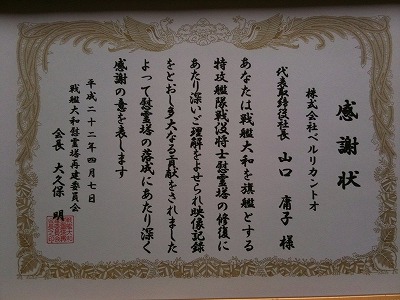 感謝状
株式会社ベルリカントオ
代表取締役社長 山口 庸子 様
あなたは戦艦大和を旗艦とする
特攻艦隊戦没将士慰霊塔の修復に
あたり深いご理解をよせられ映像記録
をとおし多大なる貢献をされました
よって慰霊塔の落成にあたり深く
感謝の意を表します
平成二十二年四月七日
戦艦大和慰霊塔再建委員会
会長 大久保 明